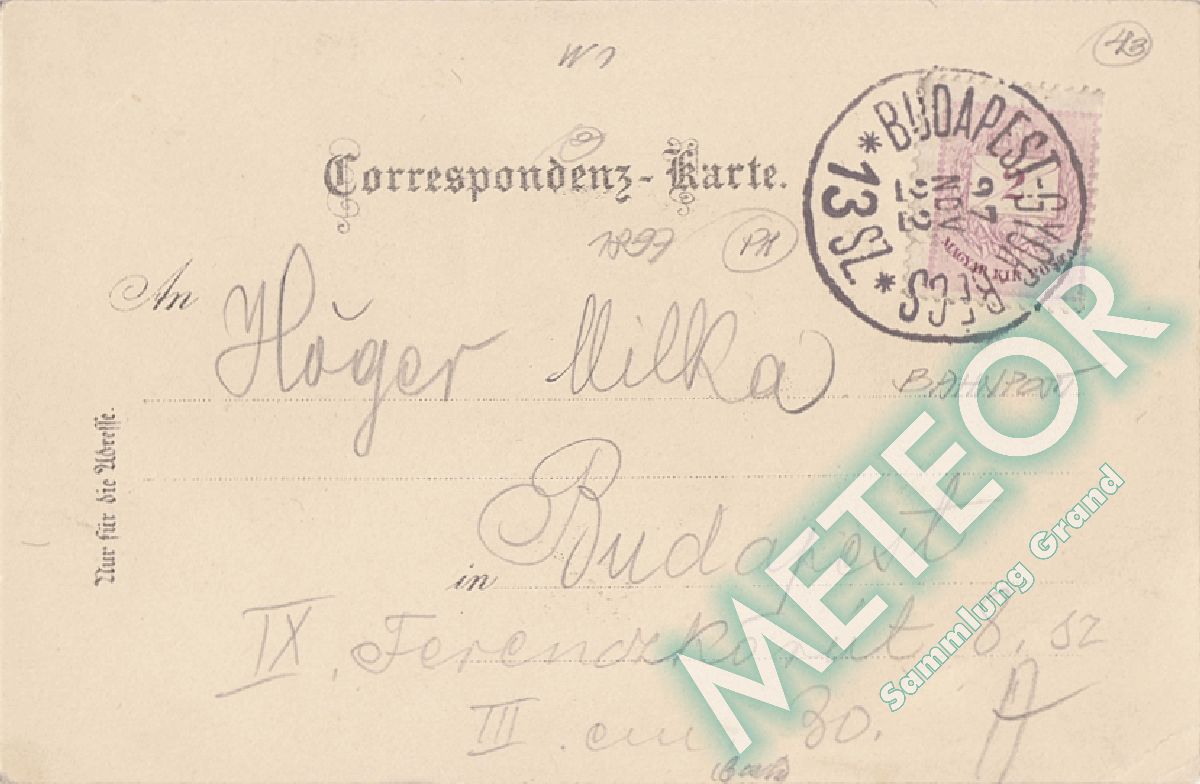 W1
43
Correspondenz-Karte.
1897
PM
BUDAPEST-GYŐR-BÉCS
97
NOV
22
* 13 SZ *
MAGYAR KIR. POSTA
An Höger Milka
BAHNPOST
Nur für die Adresse.
in Budapest
IX. Ferenczkörut 6. sz
III. em 30.
METEOR
Sammlung Grand